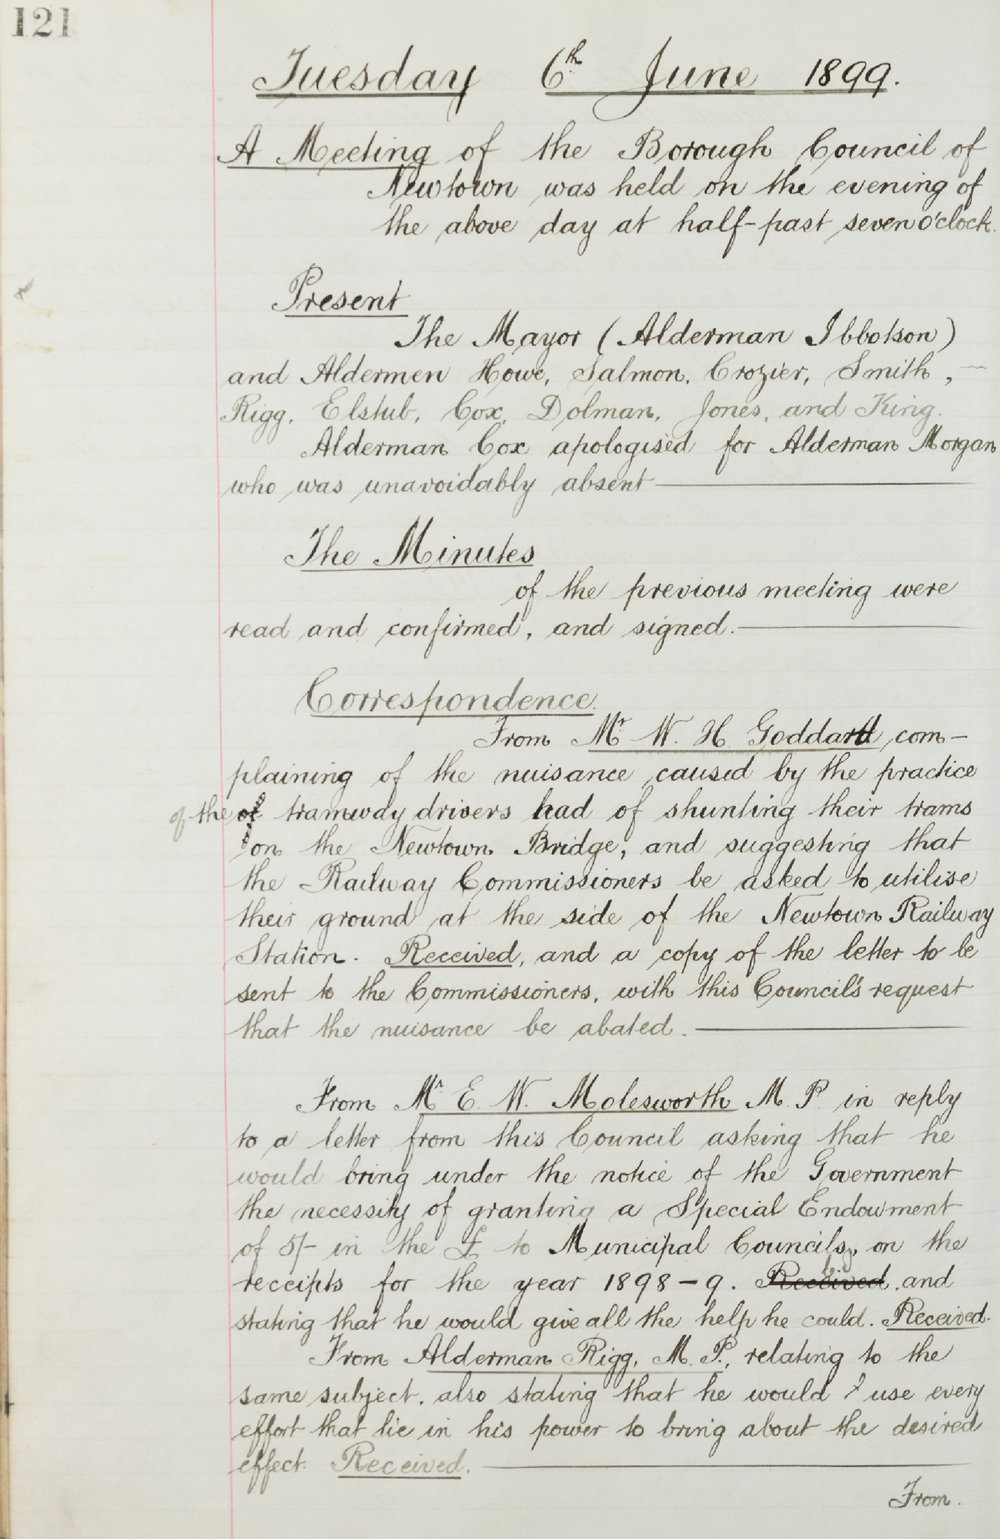 121
Tuesday 6th June 1899.
A Meeting of the Borough Council of
Newtown was held on the evening of
the above day at half-past seven o'clock.
Present
The Mayor (Alderman Ibbotson)
and Aldermen Howe, Salmon, Crozier, Smith,
Rigg, Elstub, Cox, Dolman, Jones, and King.
Alderman Cox apologised for Alderman Morgan
who was unavoidably absent
The Minutes
of the previous meeting were
read and confirmed, and signed.
Correspondence.
From Mr W. H. Goddard, com-
plaining of the nuisance caused by the practice
of the tramway drivers had of shunting their trams
on the Newtown Bridge, and suggesting that
the Railway Commissioners be asked to utilise
their ground at the side of the Newtown Railway
Station. Received, and a copy of the letter to be
sent to the Commissioners, with this Council's request
that the nuisance be abated.
From Mr E. W. Molesworth M. P. in reply
to a letter from this Council asking that he
would bring under the notice of the Government
the necessity of granting a Special Endowment
of 5/- in the £ to Municipal Councils, on the
receipts for the year 1898-9. Received and
stating that he would give all the help he could. Received.
From Alderman Rigg, M. P., relating to the
same subject, also stating that he would use every
effort that lie in his power to bring about the desired
effect. Received.
From.